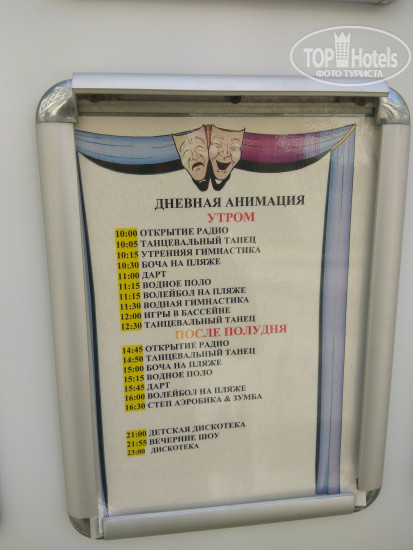 TOP Hotels
ФОТО ТУРИСТА
ДНЕВНАЯ АНИМАЦИЯ
УТРОМ
10:00 ОТКРЫТИЕ РАДИО
10:05 ТАНЦЕВАЛЬНЫЙ ТАНЕЦ
10:15 УТРЕНИЯЯ ГИМНАСТИКА
10:30 БОЧА НА ПЛЯЖЕ
11:00 ДАРТ
11:15 ВОДНОЕ ПОЛО
11:15 ВОЛЕЙБОЛ НА ПЛЯЖЕ
11:30 ВОДНАЯ ГИМНАСТИКА
12:00 ИГРЫ В БАССЕЙНЕ
12:30 ТАНЦЕВАЛЬНЫЙ ТАНЕЦ
ПОСЛЕ ПОЛУДНЯ
14:45 ОТКРЫТИЕ РАДИО
14:50 ТАНЦЕВАЛЬНЫЙ ТАНЕЦ
15:00 БОЧА НА ПЛЯЖЕ
15:15 ВОДНОЕ ПОЛО
15:45 ДАРТ
16:00 ВОЛЕЙБОЛ НА ПЛЯЖЕ
16:30 СТЕП АЭРОБИКА & ЗУМБА
21:00 ДЕТСКАЯ ДИСКОТЕКА
21:55 ВЕЧЕРНИЕ ШОУ
23:00 ДИСКОТЕКА